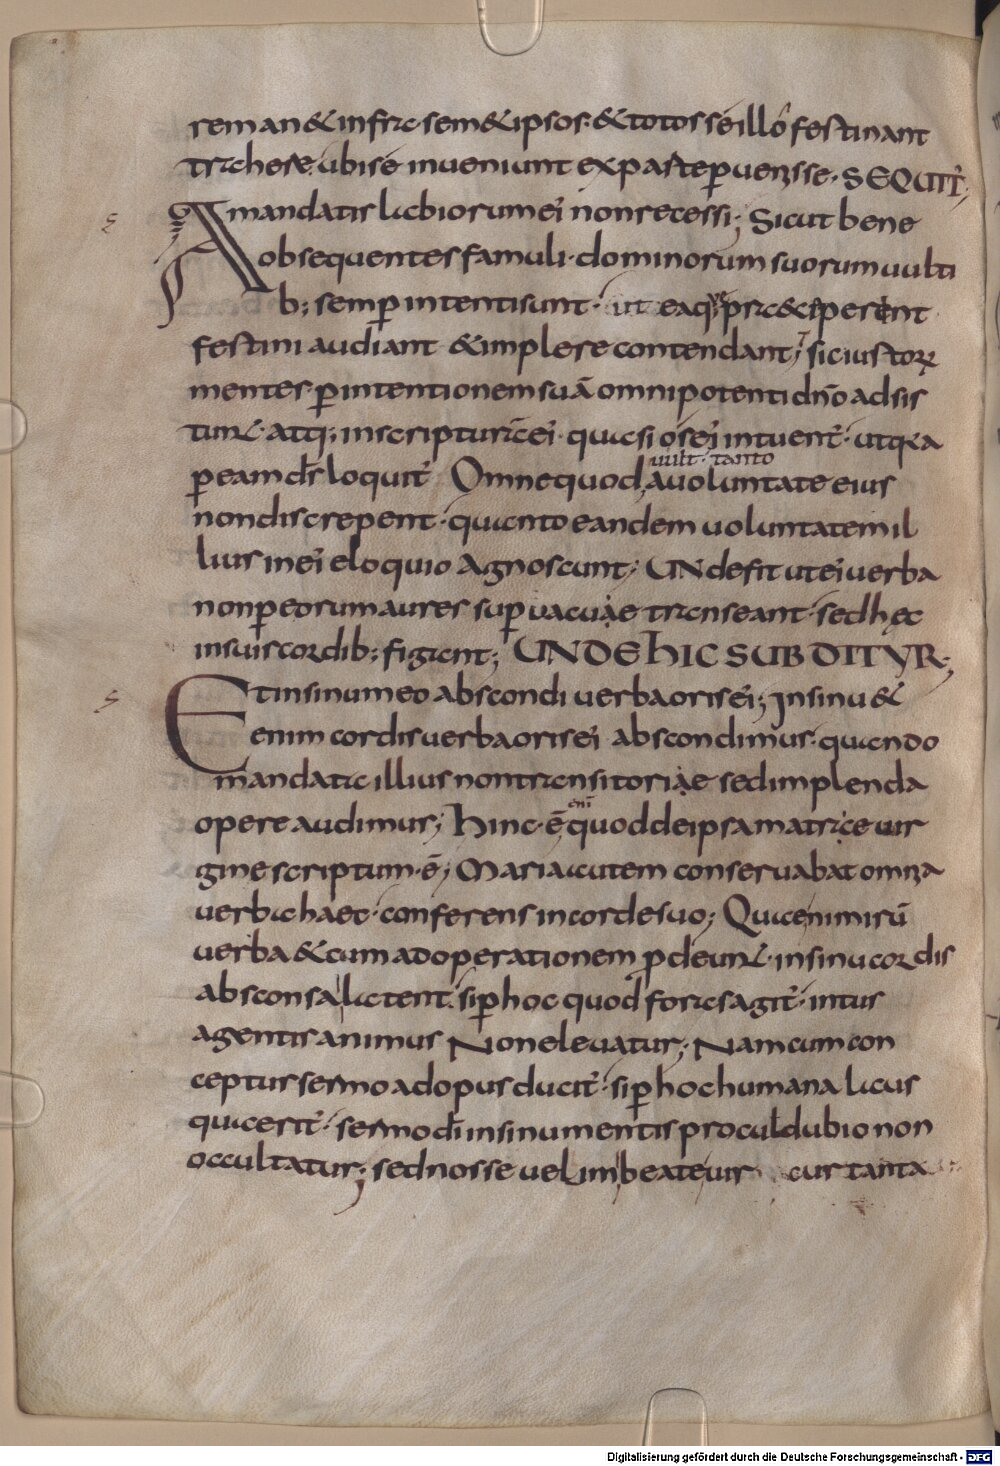 reman& infra sem&ipsos · &totos se illo festinant
trahere, ubi se inueniunt ex parte puenisse · SEQUIT̃,
A mandatis labiorum ei̅ non recessi; Sicut bene
obsequentes famuli · dominorum suorum uulti
b; semp̱ intenti sunt · ut ea que p̱ceperint
festini audiant & implere contendant; sic iustoꝝ
mentes p̱ intentionem suā omnipotenti dn̅o adsis
tunt · atq; in scriptura ei̅ quasi os ei̅ intuent̃ · ut q̅a
p̱ eam d̅s loquit̃ Omne quod uult · tanto a uoluntate eius
non discrepent · quanto eandem uoluntatem il
lius in ei̅ eloquio agnoscunt; UNde fit ut ei̅ uerba
non p̱ eorum aures sup̱uacuae transeant · sed hęc
in suis cordib; figant; UNDE hIC SUBDITUR;
Et in sinu meo abscondi uerba oris ei̅; In sinu &
enim cordis uerba oris ei̅ abscondimus · quando
mandata illius non transitoriae sed implenda
opere audimus; hinc · ē eni̅ quod de ipsa matrice uir
gine scriptum · ē; Maria autem conseruabat om̅a
uerba haec · conferens in corde suo; Qua enimirū
uerba & cum ad operationem p̱deunt · in sinu cordis
absconsa latent si p̱ hoc quod foras agit̃ · intus
agentis animus Non eleuatur; Nam cum con
ceptus sermo ad opus ducit̃ · si p̱ hoc humana laus
quaerit̃ · sermo d̅i in sinu mentis procul dubio non
occultatur; sed nosse uelim beate uir cur tanta
s
s
Digitalisierung gefördert durch die Deutsche Forschungsgemeinschaft - DFG